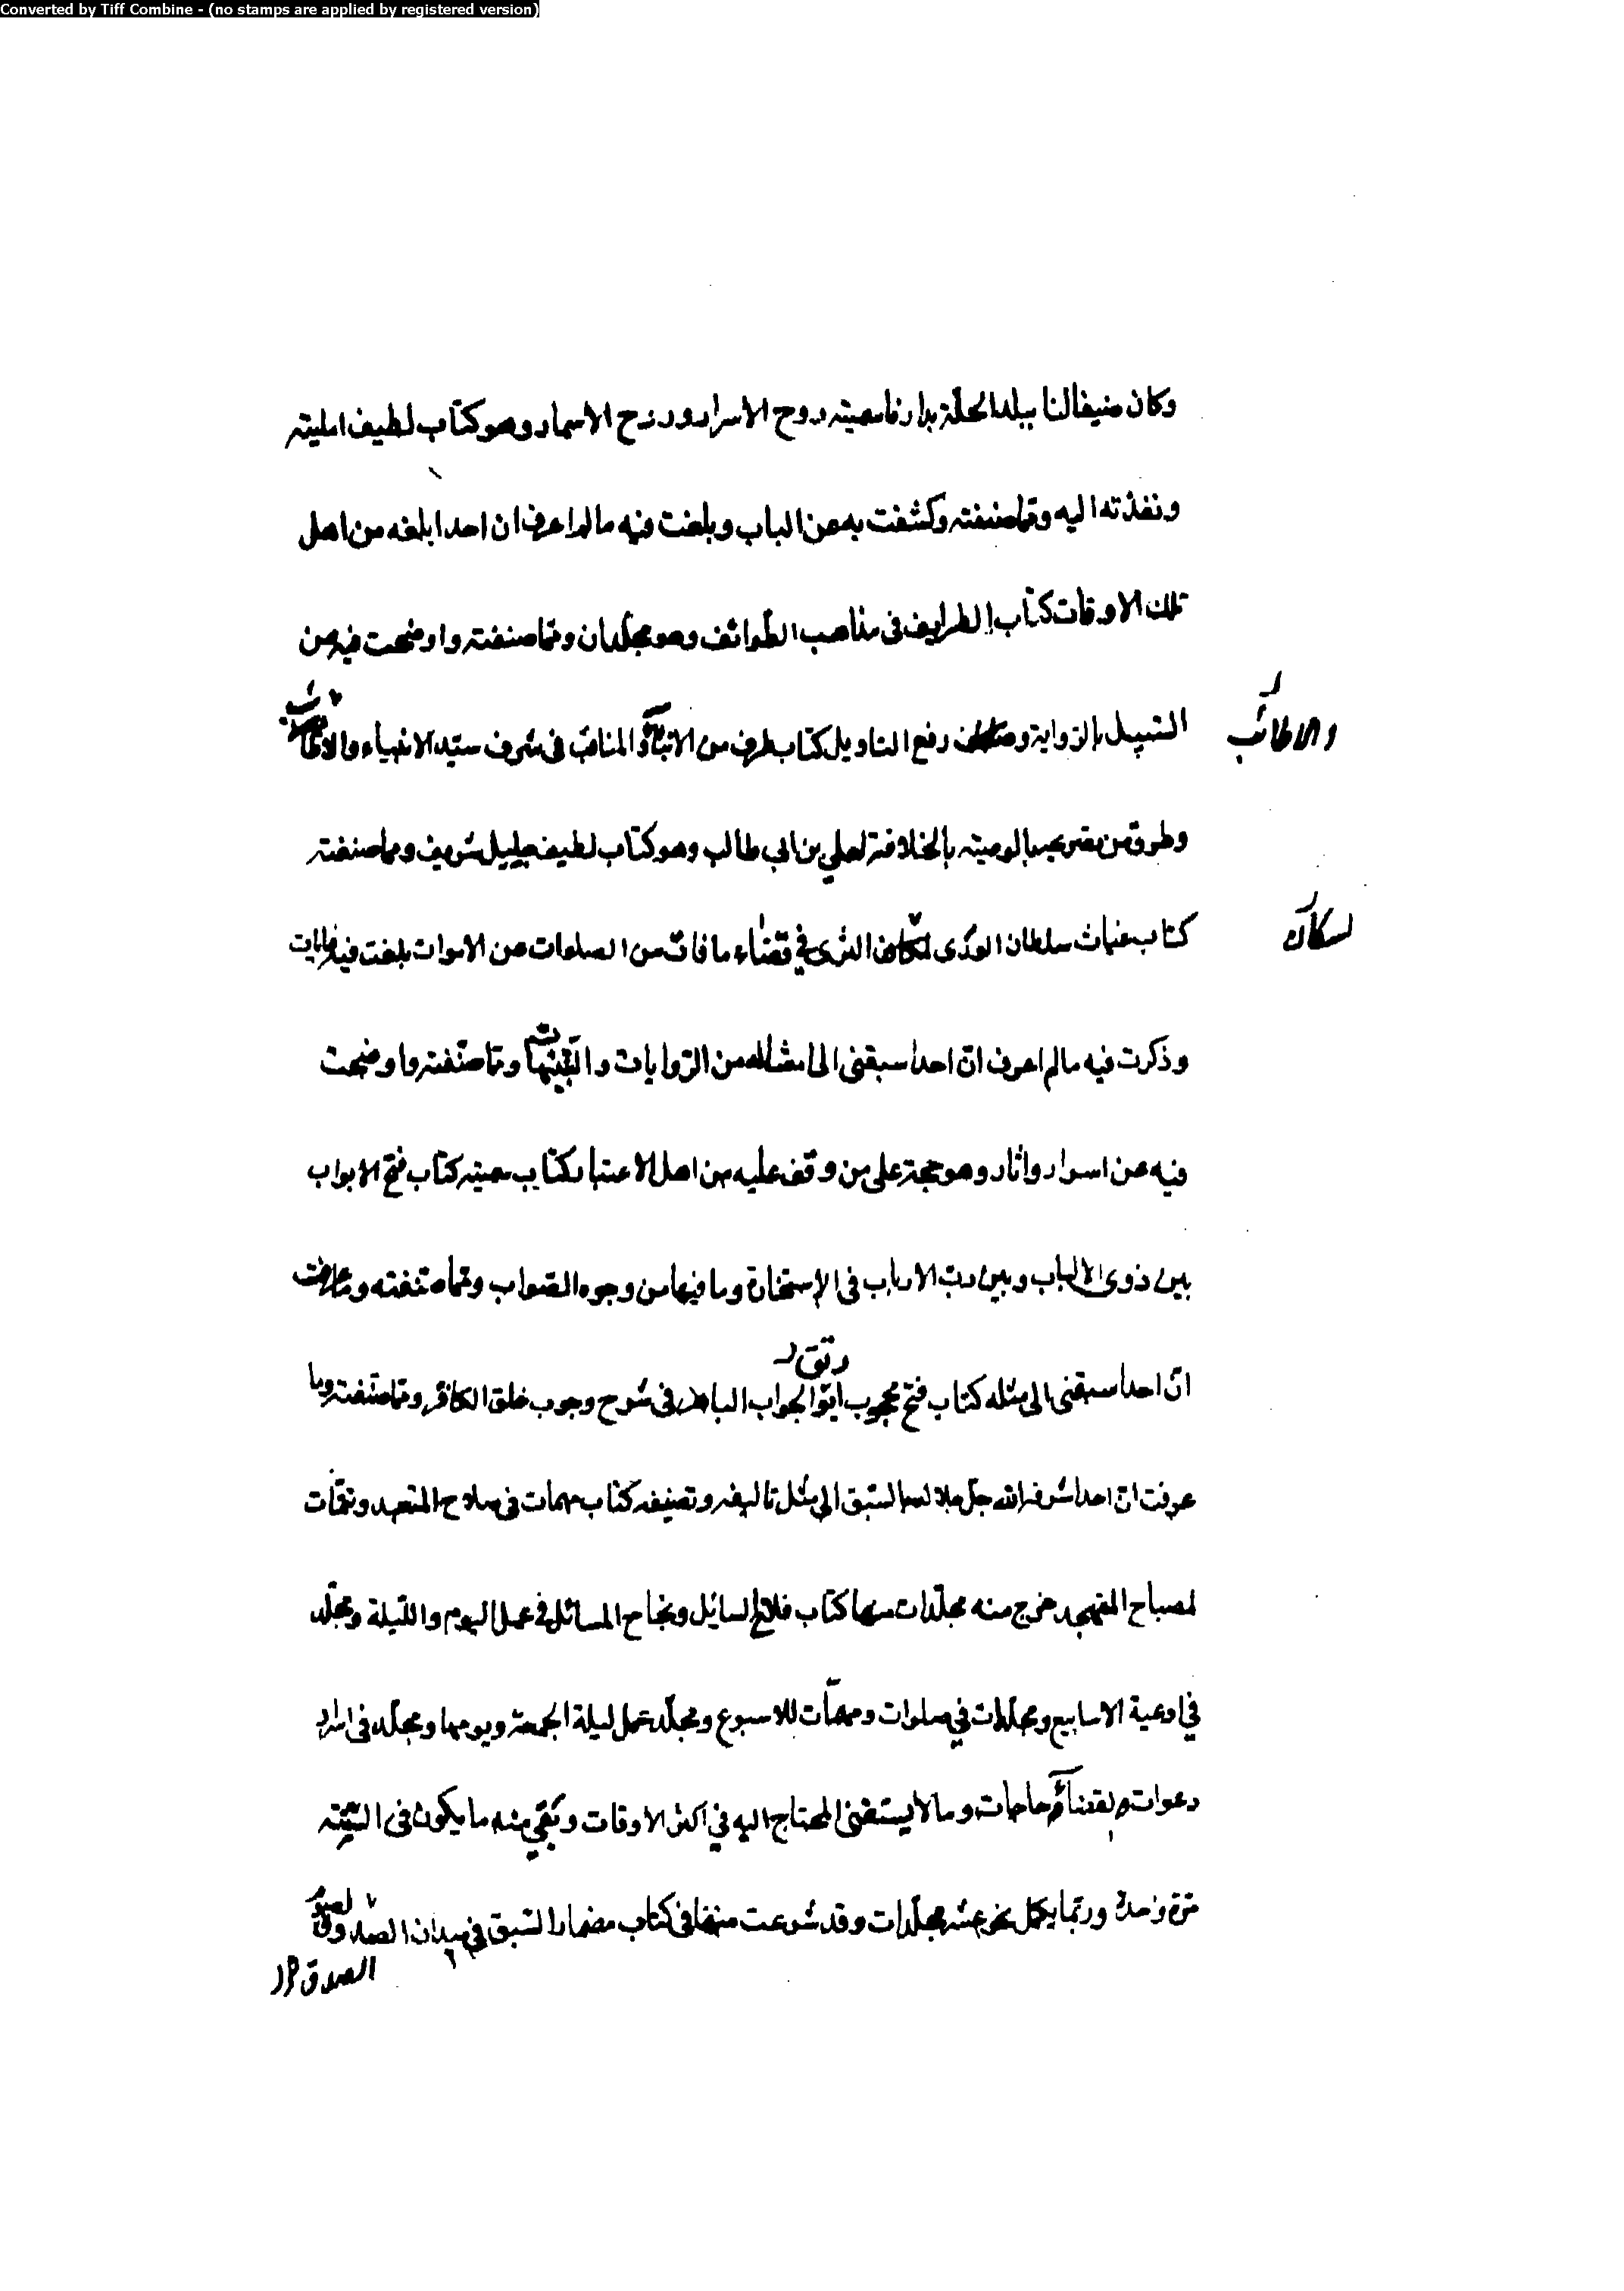 Converted by Tiff Combine - (no stamps are applied by registered version)
وكان ضيفا لنا ببلد الحلة بدارنا سميته روح الاسرار وروح الاسمار وهو كتاب لطيف امليته
ونفذته اليه ومما صنفته وكشفت به عن الباب وبلغت فيه ما لم اعرف ان احدا بلغه من اهل
تلك الاوقات كتاب الطرايف فى مذاهب الطوائف وهو مجلدان ومما صنفته واوضحت فيه من
السبيل بالرواية و رفع التاويل كتاب طرف من الانباء والمناقب فى شرف سيد الانبياء والاطائب
والاطائب
وطرق من تصريحه بالوصية بالخلافة لعلي بن ابي طالب وهو كتاب لطيف جليل شريف ومما صنفته
كتاب غياث سلطان الورى لسكان الثرى في قضاء ما فات من الصلوات عن الاموات بلغت فيه غايات
لسكان
وذكرت فيه ما لم اعرف ان احدا سبقنى الى مثاله من الروايات والتنبيهات ومما صنفته واوضحت
فيه عن اسرار واثار وهو حجة على من وقف عليه من اهل الاعتبار كتاب سميته كتاب فتح الابواب
بين ذوى الالباب وبين رب الارباب فى الإستخارة وما فيها من وجوه الصواب ومما صنفته وما عرفت
ان احدا سبقنى الى مثله كتاب فتح محجوب الجواب الباهر فى شرح وجوب خلق الكافر ومما صنفته وما
عرفت ان احدا شرفه الله جل جلاله بالسبق الى مثل تاليفه وتصنيفه كتاب مهمات فى صلاح المتعبد وتتمات
لمصباح المتهجد خرج منه مجلدات منها كتاب فلاح السايل ونجاح المسائل فى عمل اليوم والليلة ومجلد
في ادعية الاسابيع ومجلدات في صلوات ومهمات للاسبوع ومجلد عمل ليلة الجمعة ويومها ومجلد فى اسرار
دعوات لقضاء حاجات وما لا يستغنى المحتاج اليه في اكثر الاوقات وبقي منه ما يكون فى السنة
مرة واحدة وربما يكمل نحو عشر مجلدات وقد شرعت منها فى كتاب مضمار السبق في ميدان الصدق
الصدق